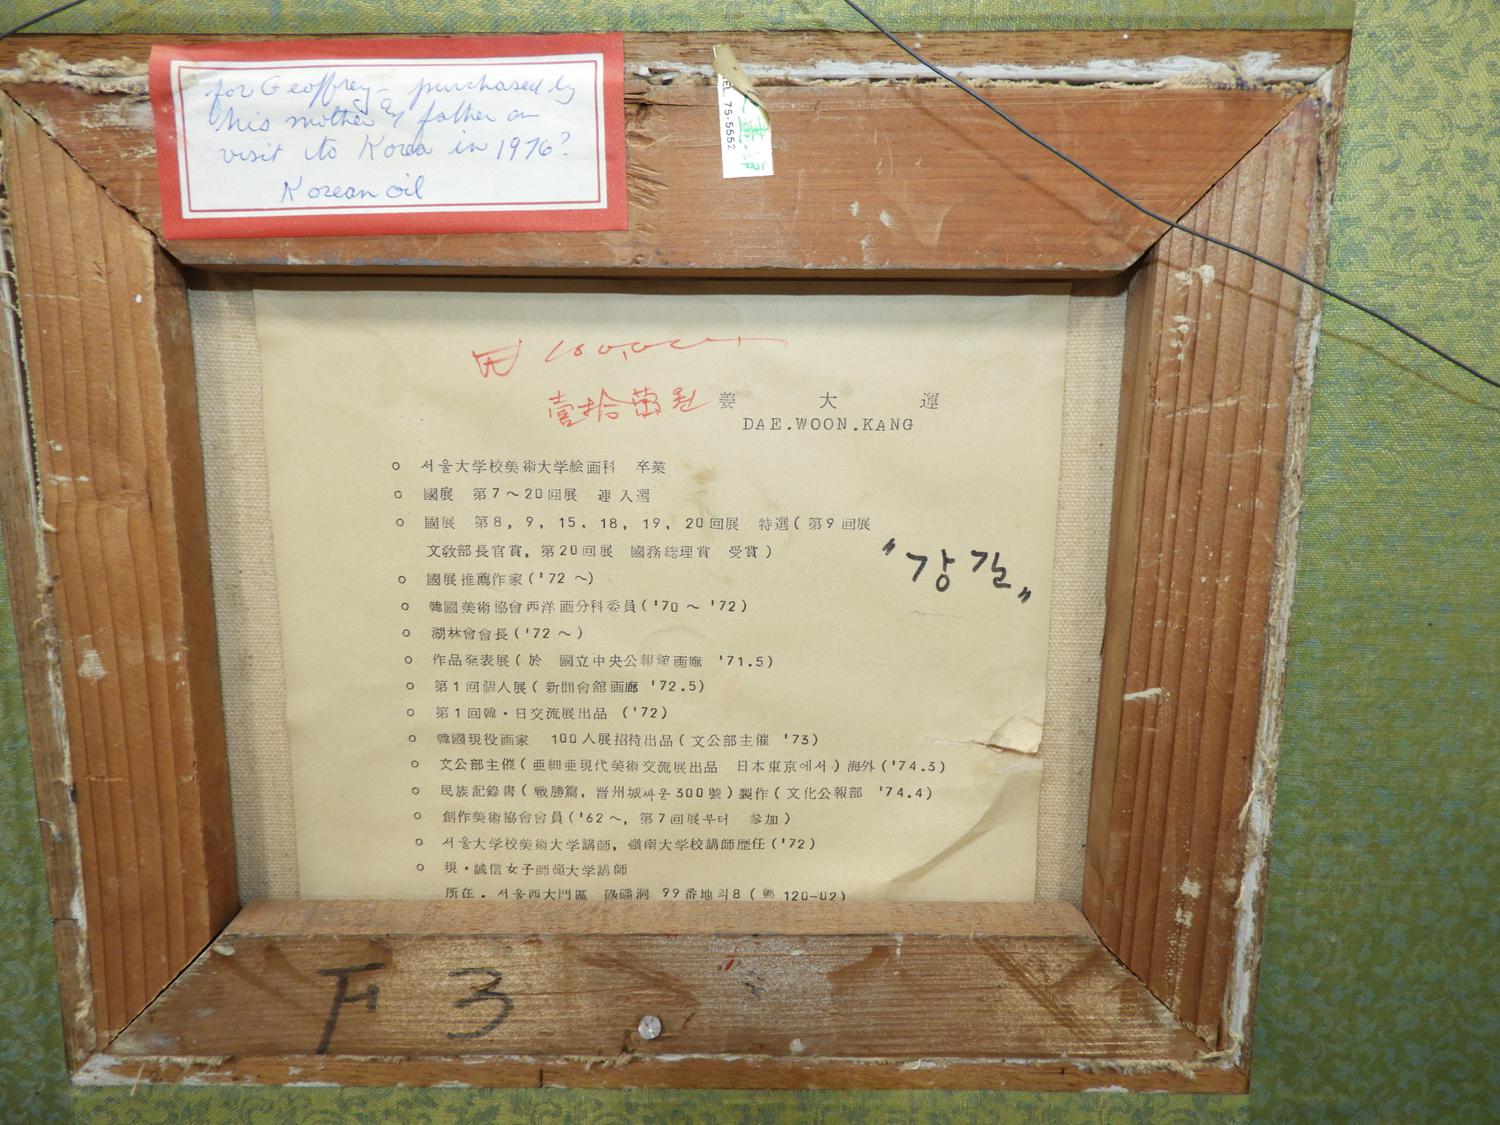 for Geoffrey - purchased by
his mother & father on
visit to Korea in 1976?
Korean oil
TEL. 75-5552
壹拾萬원
姜 大 運
DAE.WOON.KANG
○ 서울大学校美術大学絵画科 卒業
○ 國展 第7~20回展 連入選
○ 國展 第8, 9, 15, 18, 19, 20回展 特選(第9回展
文敎部長官賞, 第20回展 國務総理賞 受賞)
"강길"
○ 國展推薦作家('72~)
○ 韓國美術協會西洋画分科委員('70~'72)
○ 湖林會會長('72~)
○ 作品発表展(於 國立中央公報館画廊 '71.5)
○ 第1回個人展(新聞會館画廊 '72.5)
○ 第1回韓·日交流展出品 ('72)
○ 韓國現役画家 100人展招待出品(文公部主催 '73)
○ 文公部主催(亜細亜現代美術交流展出品 日本東京에서) 海外('74.3)
○ 民族記錄畵(戰勝篇, 晋州城싸움300號)製作(文化公報部 '74.4)
○ 創作美術協會會員('62~, 第7回展부터 参加)
○ 서울大学校美術大学講師, 嶺南大学校講師歷任('72)
○ 現·誠信女子師範大学講師
所在. 서울西大門區 碌磻洞 99番地의8 (郵 120-02)
F 3